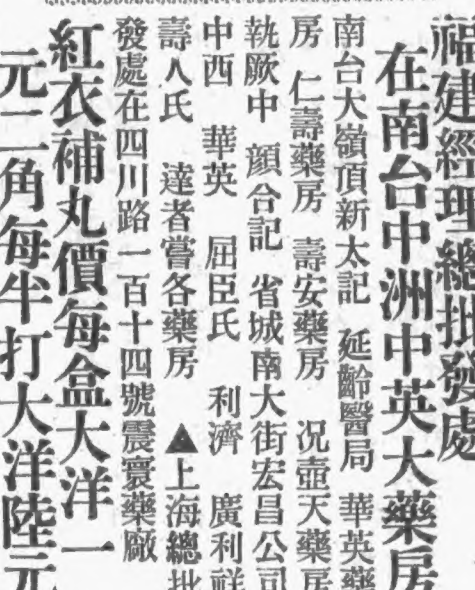 福建經理總批發處
在南台中洲中英大藥房
南台大嶺頂新太記　延齡醫局　華英藥
房　仁壽藥房　壽安藥房　況壺天藥房
執厥中　顏合記　省城南大街宏昌公司
中西　華英　屈臣氏　利濟　廣利祥
壽人氏　達者嘗各藥房　▲上海總批
發處在四川路一百十四號震寰藥廠
紅衣補丸價每盒大洋一
元二角每半打大洋陸元